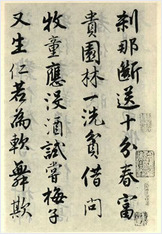 剎那斷送十分春富
貴園林一洗貧借問
牧童應沒酒試嘗梅子
又生仁若為軟舞欺